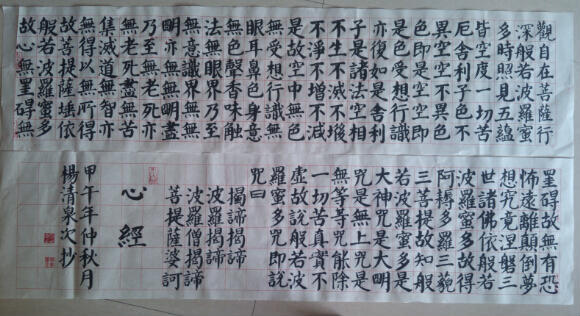 觀自在菩薩行
深般若波羅蜜
多時照見五蘊
皆空度一切苦
厄舍利子色不
異空空不異色
色即是空空即
是色受想行識
亦復如是舍利
子是諸法空相
不生不滅不垢
不淨不增不減
是故空中無色
無受想行識無
眼耳鼻舌身意
無色聲香味觸
法無眼界乃至
無意識界無無
明亦無無明盡
乃至無老死亦
無老死盡無苦
集滅道無智亦
無得以無所得
故菩提薩埵依
般若波羅蜜多
故心無罣礙無
罣礙故無有恐
怖遠離顛倒夢
想究竟涅槃三
世諸佛依般若
波羅蜜多故得
阿耨多羅三藐
三菩提故知般
若波羅蜜多是
大神咒是大明
咒是無上咒是
無等等咒能除
一切苦真實不
虛故說般若波
羅蜜多咒即說
咒曰
揭諦揭諦
波羅揭諦
波羅僧揭諦
菩提薩婆訶
心經
甲午年仲秋月
楊清泉次抄